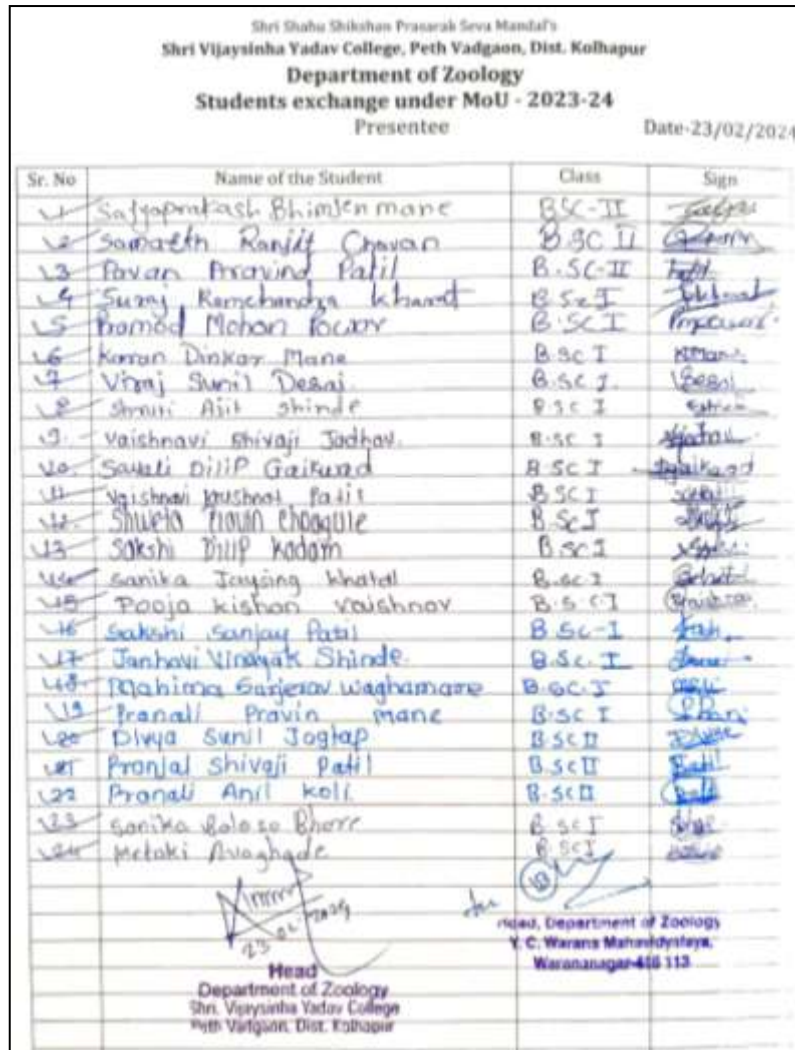 Shri Shahu Shikshan Prasarak Seva Mandal's
Shri Vijaysinha Yadav College, Peth Vadgaon, Dist. Kolhapur
Department of Zoology
Students exchange under MoU - 2023-24
Presentee Date-23/02/2024
Sr. No Name of the Student Class Sign
1 Satyaprakash Bhimsen mane BSC-II
2 Samarth Ranjit Chavan B.SC II
3 Pavan Pravind Patil B.SC-II
4 Suraj Ramchandra Kharat B Sc I
5 Pramod Mohan Powar B.SC I
6 Karan Dinkar Mane B.SC I
7 Viraj Sunil Desai B.SC I. Desai
8 Shruti Ajit Shinde B.SC I
9. Vaishnavi Shivaji Jadhav. B.SC I Jadhav
10 Savali DiliP Gaikwad B SC I Gaikwad
11 Vaishnavi Krushnat Patil B SC I
12. Shweta Chougule B.Sc I
13 Sakshi Dilip Kadam B.SC I
14 Sanika Jaysing Khatal B.SC I
15 Pooja kishan vaishnav B.S.C I Vaishnav
16 Sakshi Sanjay Patil B SC-I
17 Janhavi Vinayak Shinde. B.Sc. I
18 Mahima Sarjerav Waghamare B.SC.I
19 Pranali Pravin mane B.SC I
20 Divya Sunil Jogtap B.SC II
21 Pranjal Shivaji Patil B.SC II Patil
22 Pranali Anil Koli. B.SC II
23 Sanika Balaso Bhore B.SC I
24 Avaghade B.SC I
Head, Department of Zoology
Y. C. Warana Mahavidyalaya,
Warananagar-416 113
Head
Department of Zoology
Shri. Vijaysinha Yadav College
Peth Vadgaon, Dist. Kolhapur